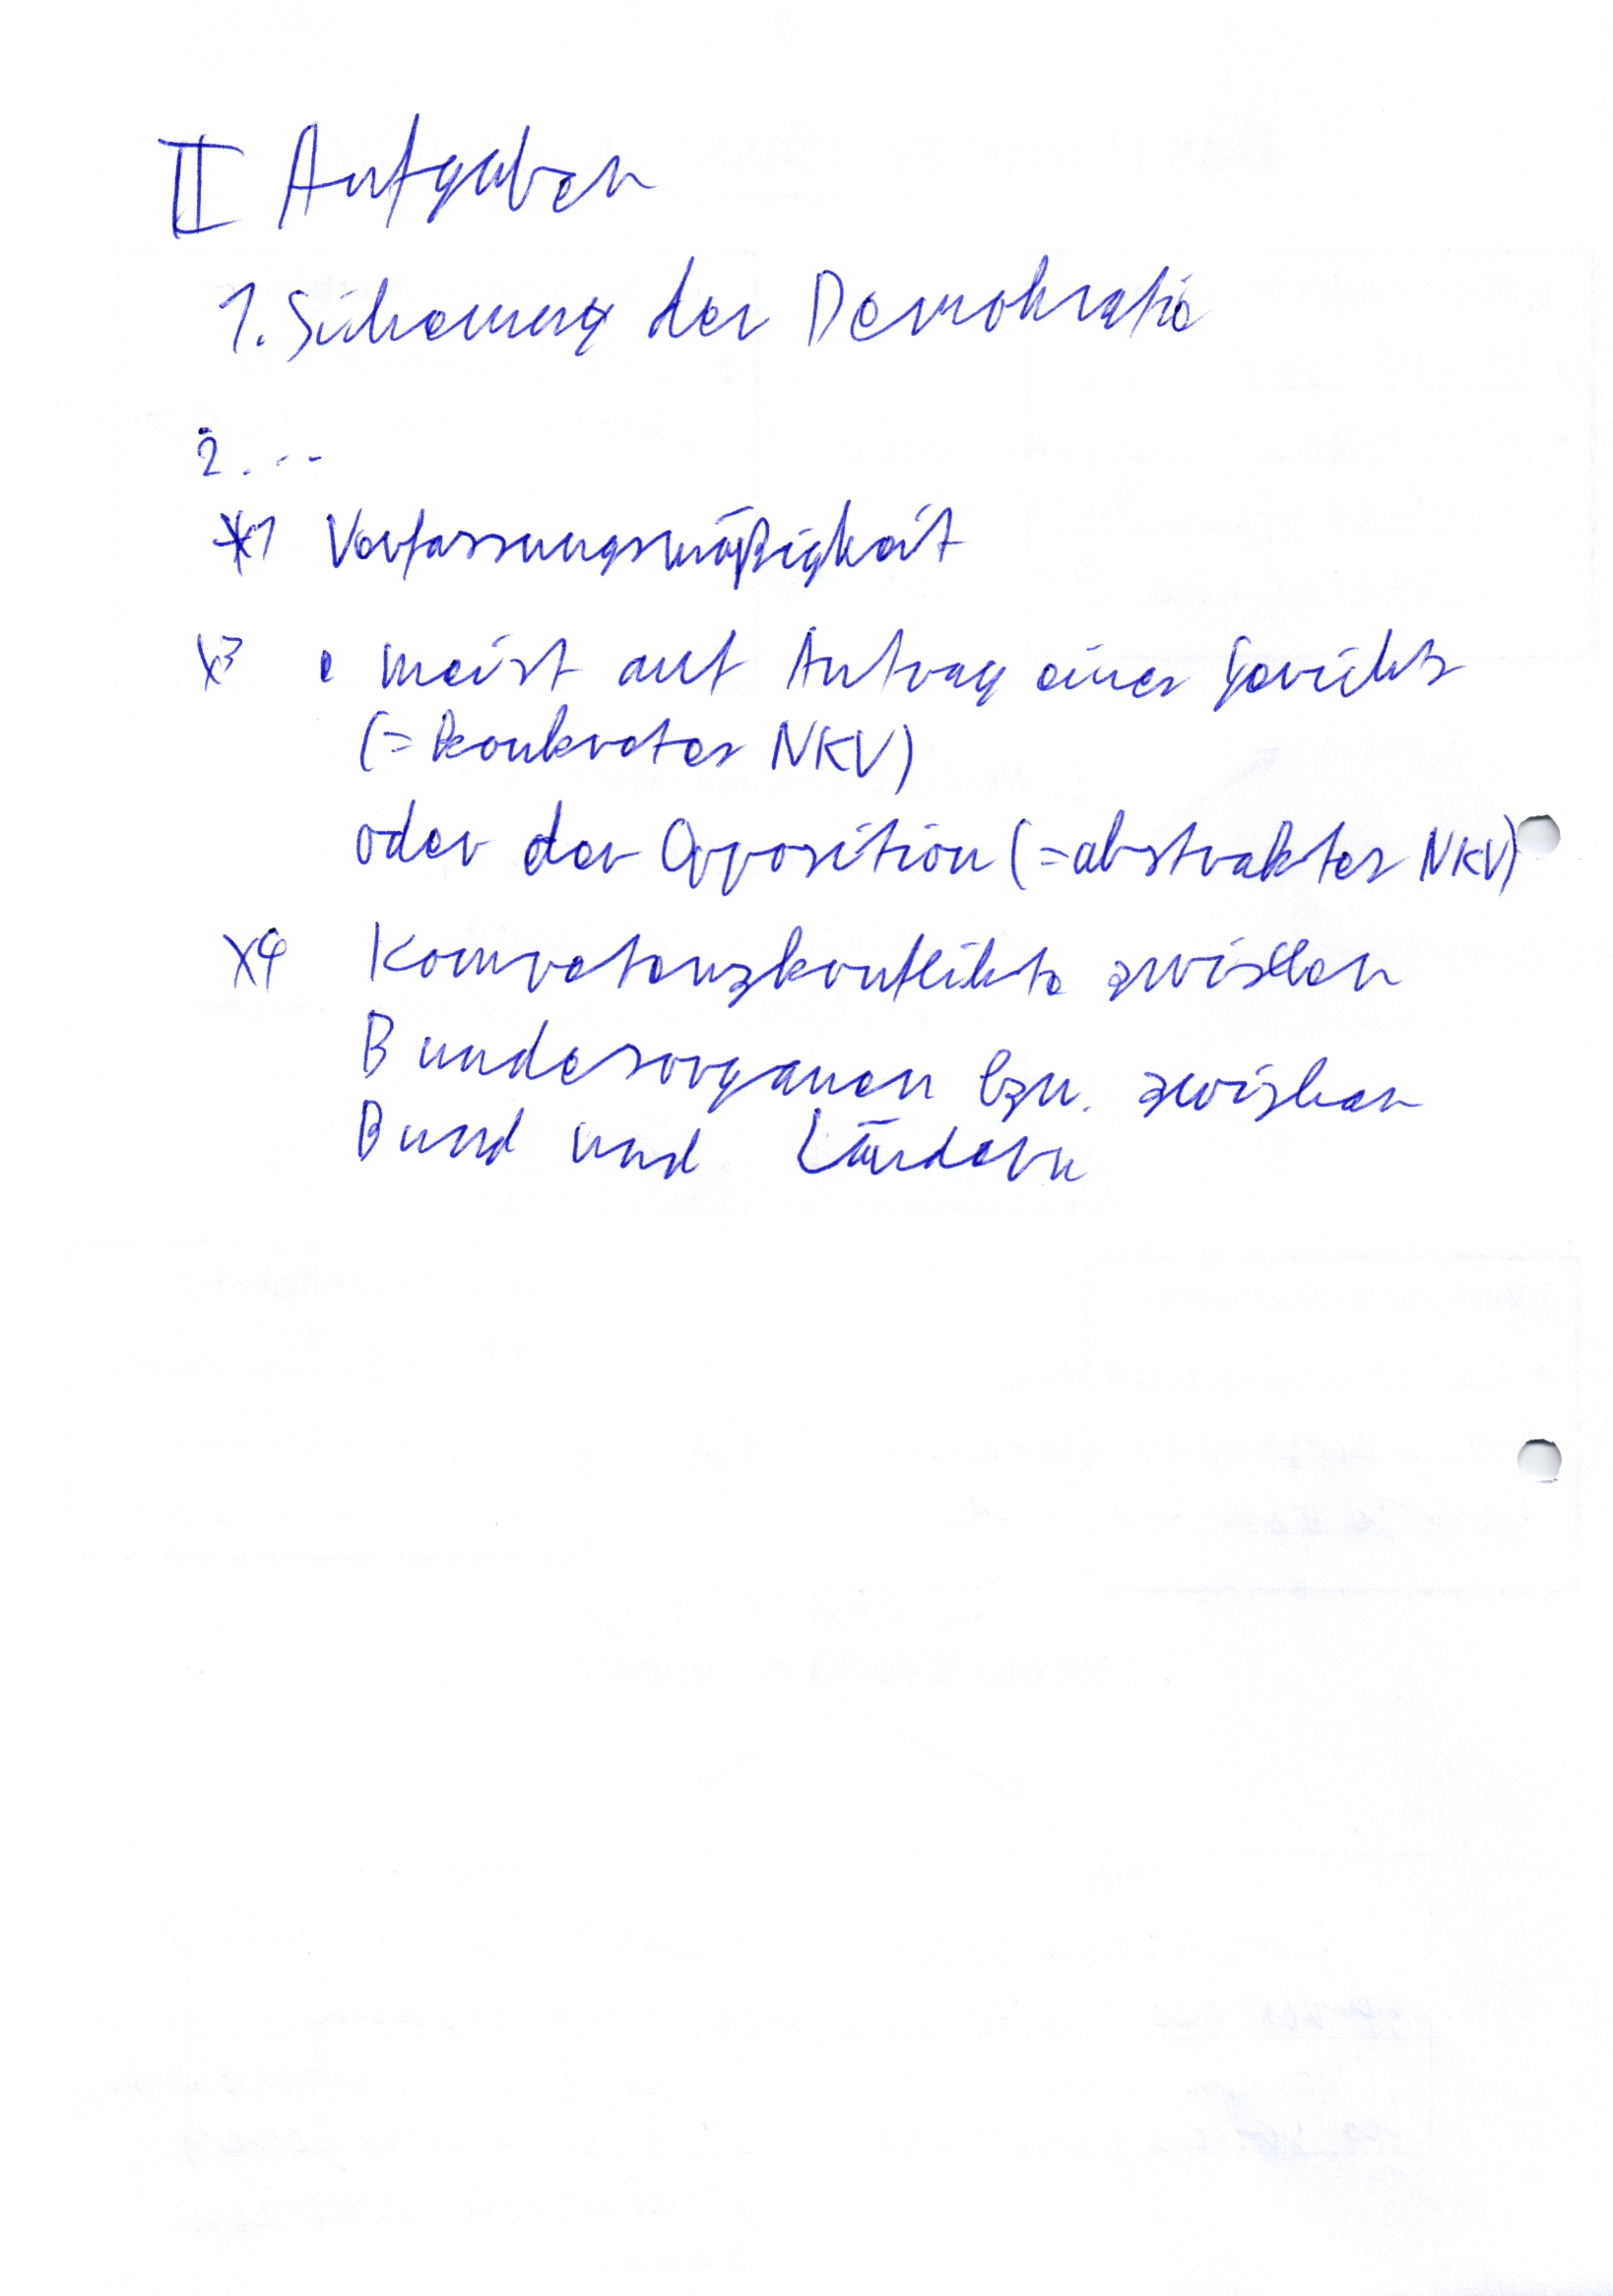 II Aufgaben
1. Sicherung der Demokratie
2. ...
*1 Verfassungsmäßigkeit
*3 • meist auf Antrag eines Gerichts
(= konkretes NKV)
oder der Opposition (= abstraktes NKV)
*4 Kompetenzkonflikte zwischen
Bundesorganen bzw. zwischen
Bund und Ländern